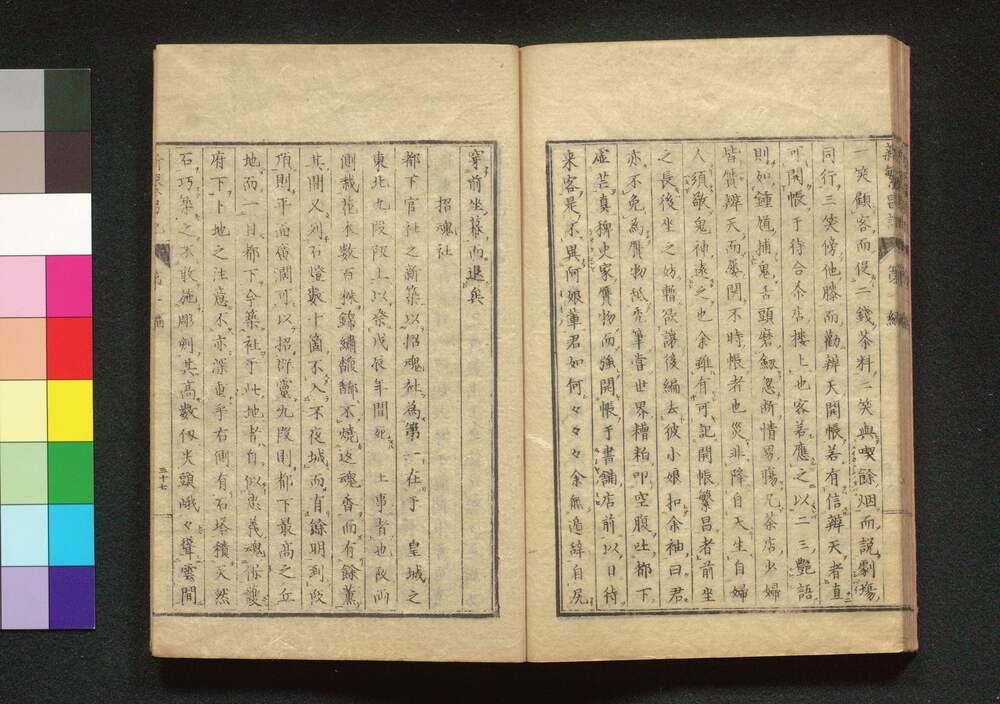 一笑顧客而促二錢茶料二笑與喫餘烟而說劇塲
同行三笑傍他膝而勸辨天開帳若有信辨天者直
可開帳于待合茶店摟上也客若應之以二三艷語
則如鍾馗捕鬼舌頭磨劔忽斷情男膓凡茶店少婦
皆贋辨天而屢開不時帳者也災非降自天生自婦
人須敬鬼神遠之也余雖有可記開帳繁昌者前坐
之長後坐之妨暫欲讓後編去彼小娘扣余袖曰君
亦不免為贋物紙禿筆嘗世界糟粕叩空腹吐都下
虛芸真稗史家贋物而強開帳于書舖店前以日待
来客是不異阿娘輩君如何々々々余無遁辭自尻
穿前坐幕而退矣
招魂社
都下官社之新築以招魂社為第一在于 皇城之
東北九段阪上以祭戊辰年間死 王事者也阪両
側栽花木数百株錦繡馥郁不燒返魂香而有餘薰
其間又列石燈數十箇不入不夜城而有餘明到阪
頂則平而廣濶可以招衍靈九段則都下最高之丘
地而一目都下今築社于此地者自似忠義魂保護
府下卜地之注意不亦深重乎右側有石塔積天然
石巧築之不敢施彫剜其高數仭尖頭峨々聳雲間
三十七